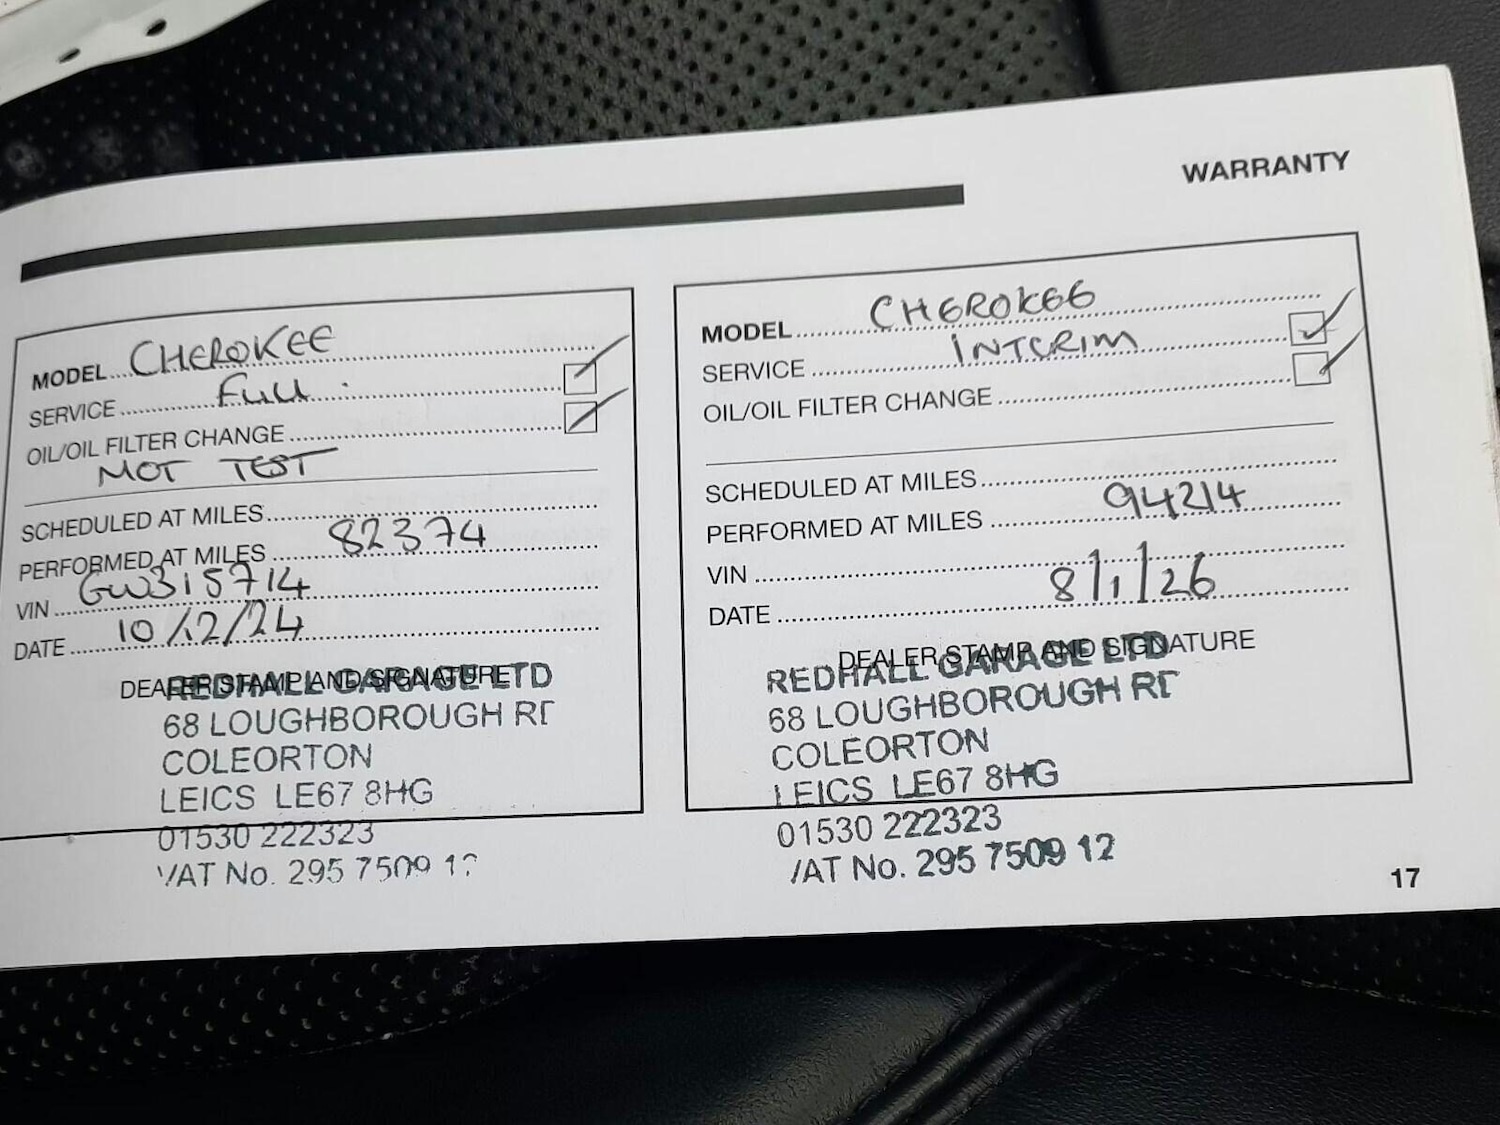 WARRANTY
MODEL CHEROKEE
SERVICE Full
OIL/OIL FILTER CHANGE
MOT TEST
SCHEDULED AT MILES
PERFORMED AT MILES 82374
VIN GW315714
DATE 10/12/24
DEALER STAMP AND SIGNATURE
REDHALL GARAGE LTD
68 LOUGHBOROUGH RD
COLEORTON
LEICS LE67 8HG
01530 222323
VAT No. 295 7509 12
MODEL CHEROKEE
SERVICE INTERIM
OIL/OIL FILTER CHANGE
SCHEDULED AT MILES
PERFORMED AT MILES 94214
VIN
DATE 8/1/26
DEALER STAMP AND SIGNATURE
REDHALL GARAGE LTD
68 LOUGHBOROUGH RD
COLEORTON
LEICS LE67 8HG
01530 222323
VAT No. 295 7509 12
17